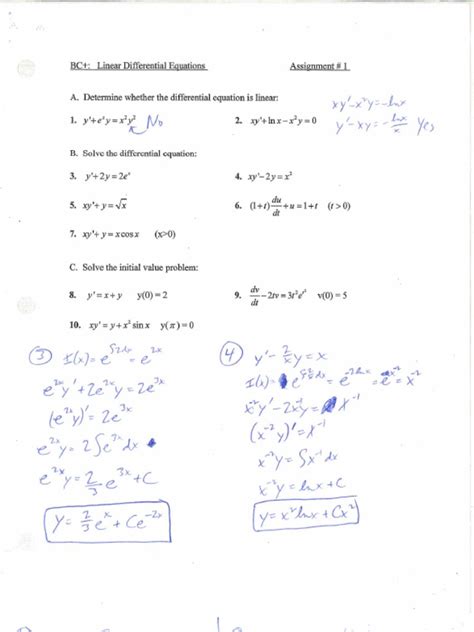 BC+: Linear Differential Equations Assignment # 1
A. Determine whether the differential equation is linear:
xy'-x²y=-lnx
1. y'+eˣy=x²y² No 2. xy'+ln x-x²y=0
y'-xy=-lnx/x Yes
B. Solve the differential equation:
3. y'+2y=2eˣ 4. xy'-2y=x²
5. xy'+y=√x 6. (1+t)du/dt+u=1+t (t>0)
7. xy'+y=xcosx (x>0)
C. Solve the initial value problem:
8. y'=x+y y(0)=2 9. dv/dt-2tv=3t²e^(t²) v(0)=5
10. xy'=y+x² sin x y(π)=0
③ I(x)=e^(∫2dx)=e^(2x)
e^(2x)y'+2e^(2x)y=2e^(3x)
(e^(2x)y)'=2e^(3x)
e^(2x)y=2∫e^(3x)dx
e^(2x)y=2/3 e^(3x)+C
y=2/3 eˣ+Ce^(-2x)
④ y'-2/x y=x
x⁻²y'-2x⁻³y=x⁻¹
(x⁻²y)'=x⁻¹
x⁻²y=∫x⁻¹dx
x⁻²y=lnx+C
y=x²lnx+Cx²